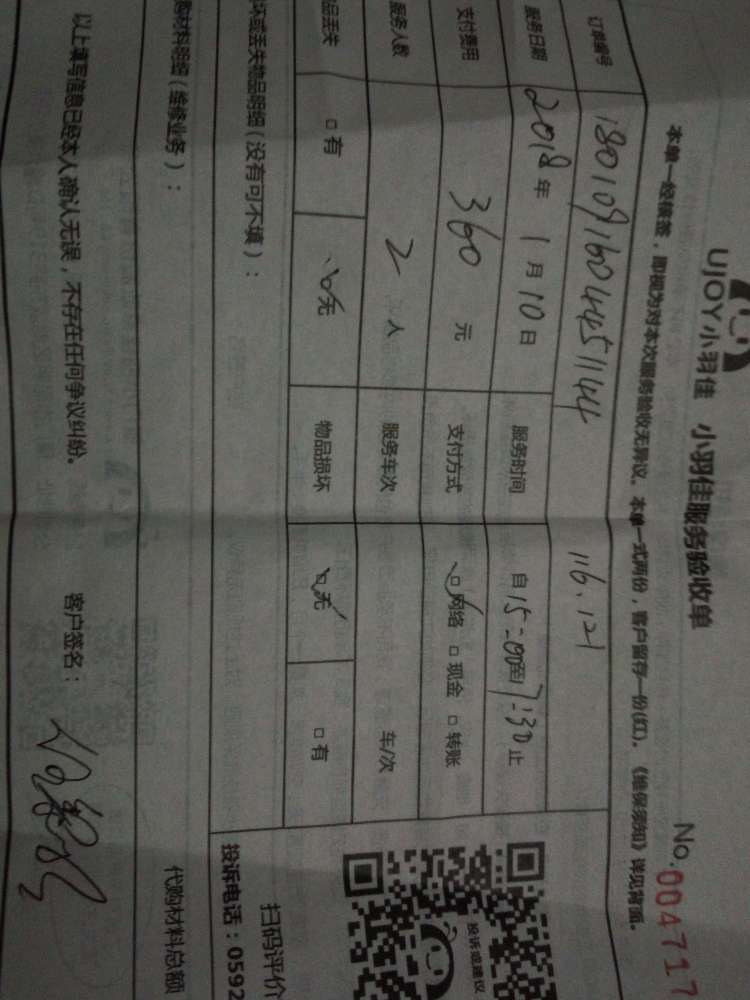 UJOY小羽佳 小羽佳服务验收单
No.004717
本单一经核签，即视为对本次服务验收无异议。本单一式两份，客户留存一份(红)。《维保须知》详见背面。
订单编号 1801091604451144 116.121
服务日期 2018年1月10日 服务时间 自15-00至17:30止
支付费用 360元 支付方式 □网络 □现金 □转账
服务人数 2人 服务车次 车/次
品丢失 □有 □无 物品损坏 □无 □有
坏或丢失物品明细（没有可不填）：
投诉或建议
扫码评价
投诉电话：0592
购材料明细（维修业务）：
代购材料总额
以上填写信息已经本人确认无误，不存在任何争议纠纷。 客户签名：